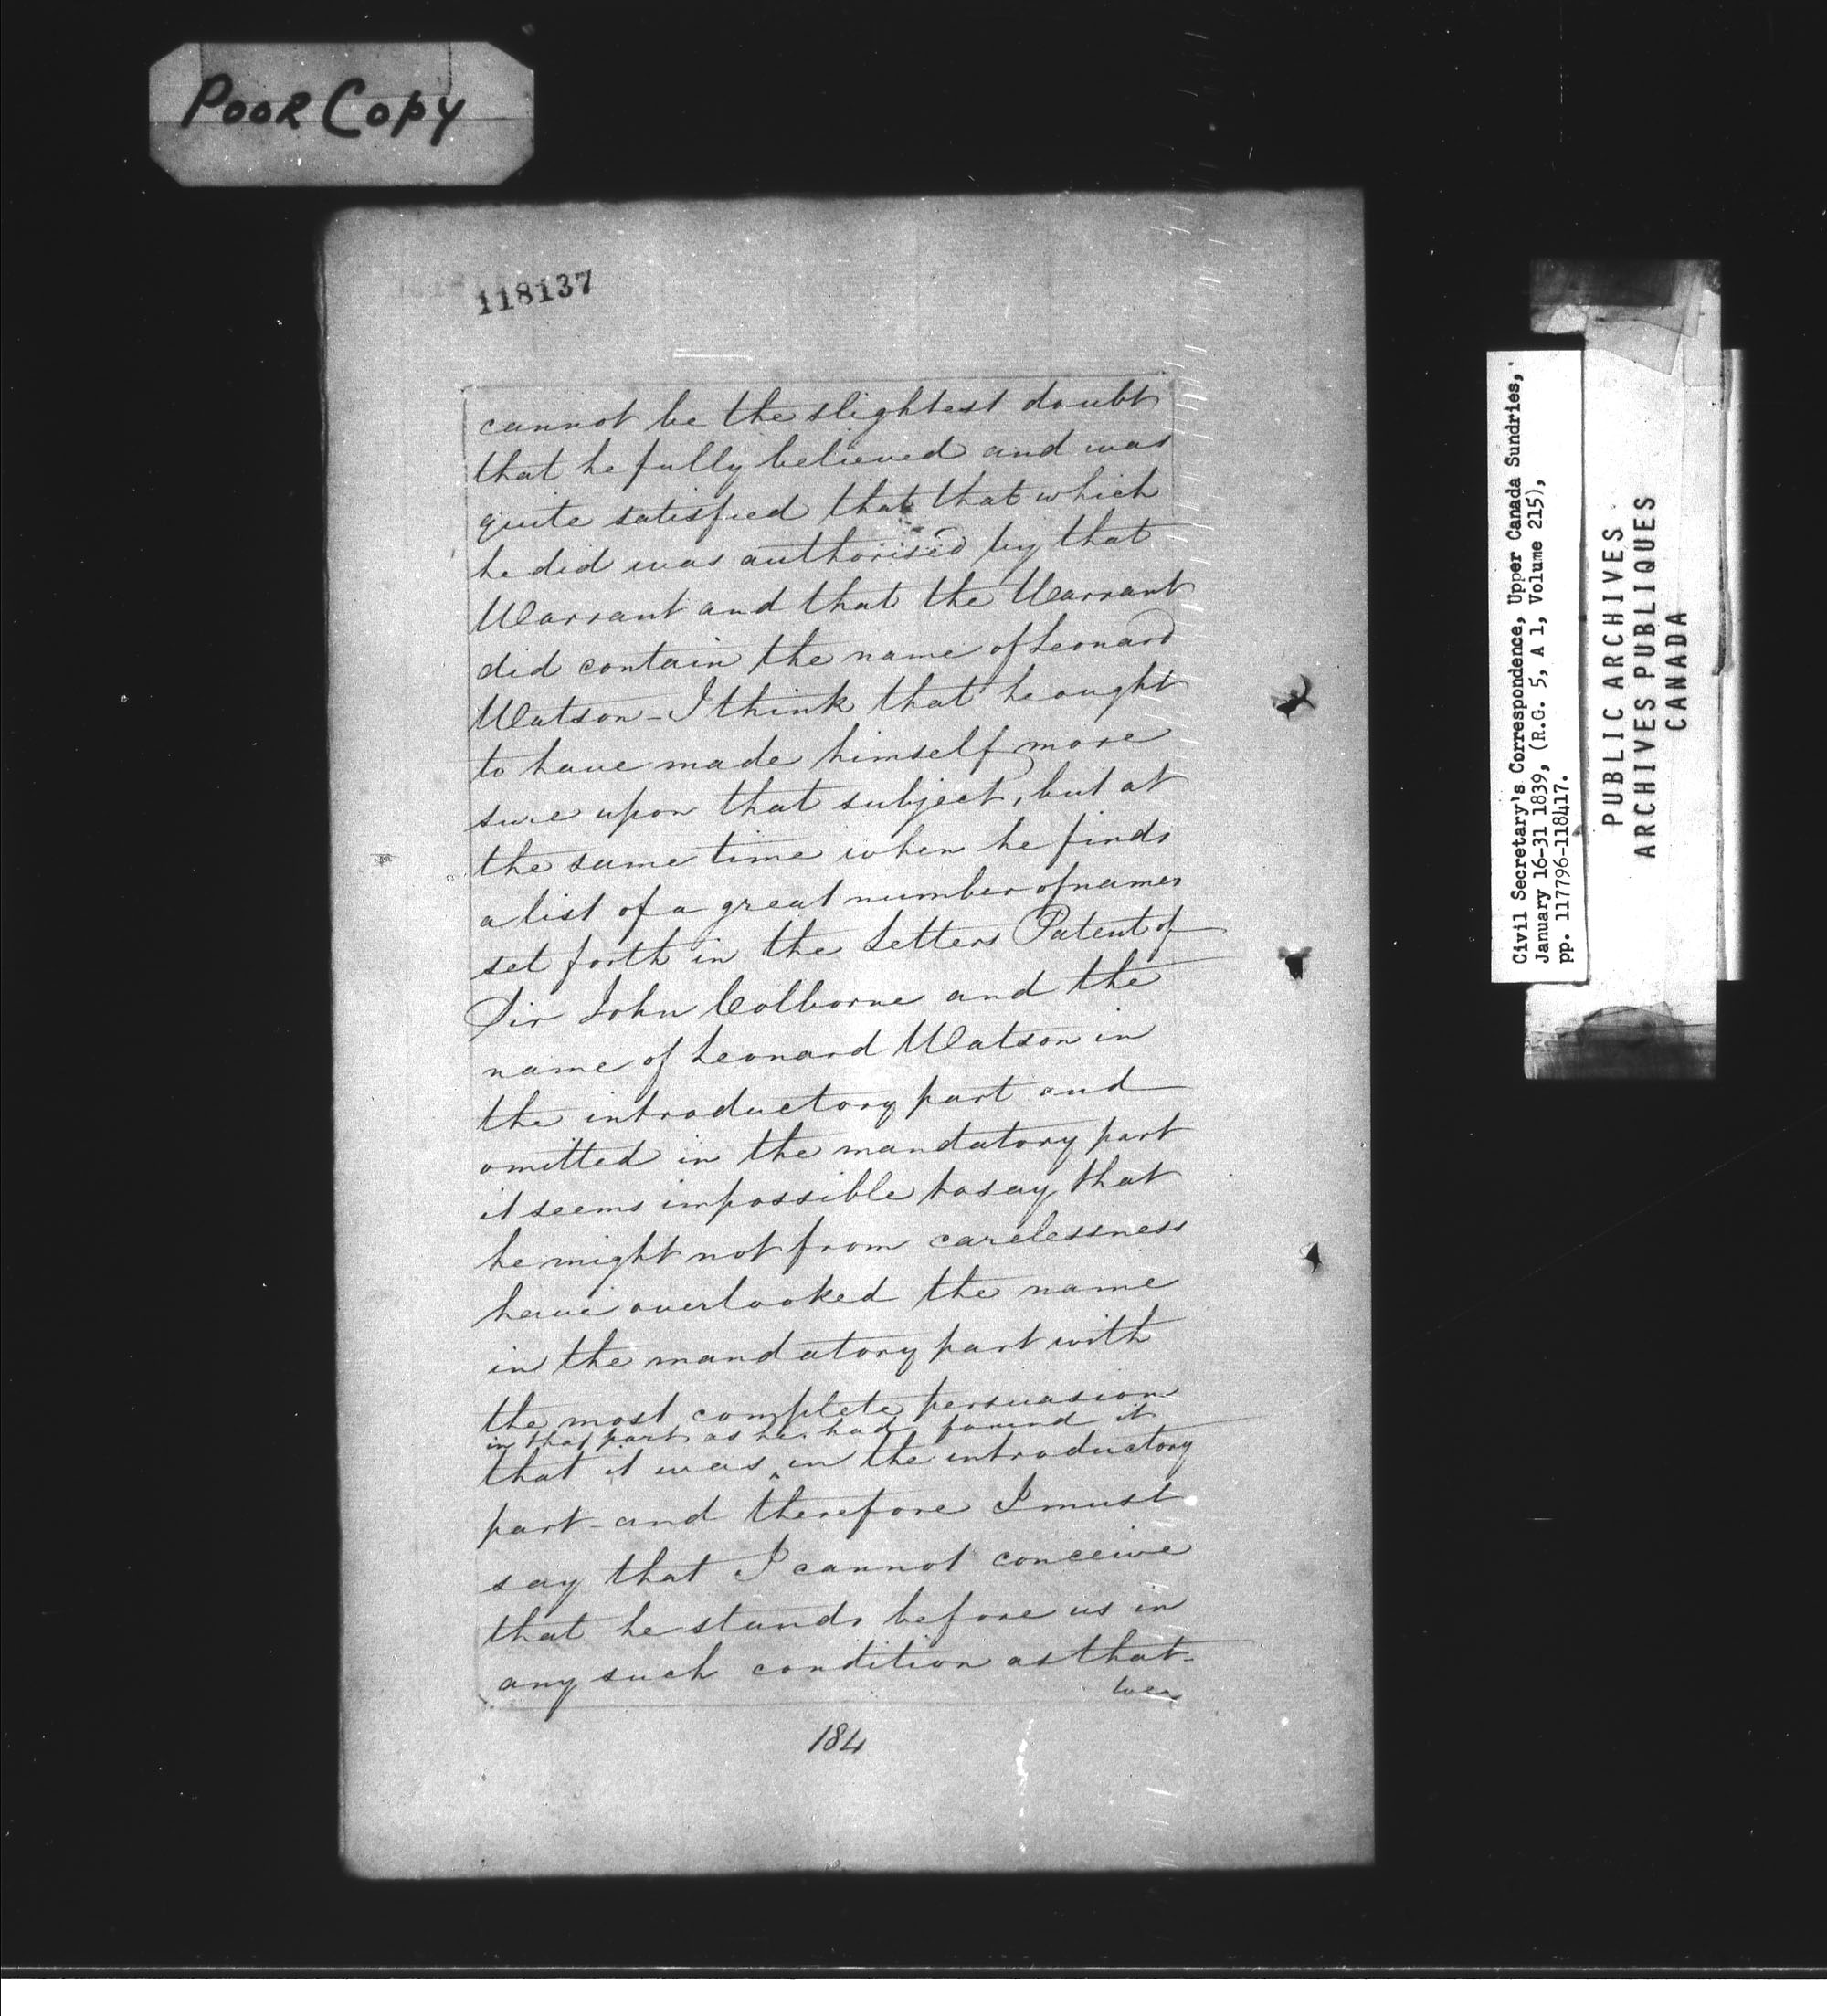 Poor Copy
118137
cannot be the slightest doubt
that he fully believed and was
quite satisfied that that which
he did was authorised by that
Warrant and that the Warrant
did contain the name of Leonard
Watson - I think that he ought
to have made himself more
sure upon that subject, but at
the same time when he finds
a list of a great number of names
set forth in the Letters Patent of
Sir John Colborne and the
name of Leonard Watson in
the introductory part and
omitted in the mandatory part
it seems impossible to say that
he might not from carelessness
have overlooked the name
in the mandatory part with
the most complete persuasion
in that part as he had found it
that it was ^ in the introductory
part - and therefore I must
say that I cannot conceive
that he stands before us in
any such condition as that
184
Civil Secretary's Correspondence, Upper Canada Sundries,
January 16-31 1839, (R.G. 5, A 1, Volume 215),
pp. 117796-118417.
PUBLIC ARCHIVES
ARCHIVES PUBLIQUES
CANADA